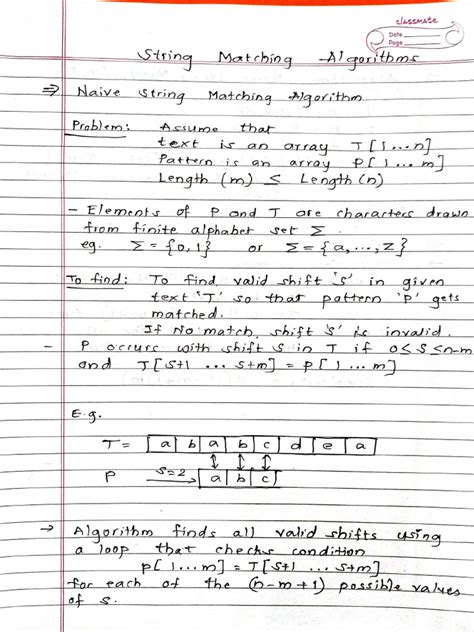 classmate
Date
Page
String Matching Algorithms
⇒ Naive String Matching Algorithm
Problem: Assume that
text is an array T[1...n]
Pattern is an array P[1...m]
Length (m) ≤ Length (n)
- Elements of P and T are characters drawn
from finite alphabet set Σ.
eg. Σ = {0,1} or Σ = {a,...,z}
To find: To find valid shift 's' in given
text 'T' so that pattern 'P' gets
matched.
If No match, shift 's' is invalid.
- P occurs with shift s in T if 0≤s≤n-m
and T[s+1 ... s+m] = P[1...m]
E.g.
T = a b a b c d e a
P s=2 a b c
→ Algorithm finds all valid shifts using
a loop that checks condition
P[1...m] = T[s+1 ... s+m]
for each of the (n-m+1) possible values
of s.